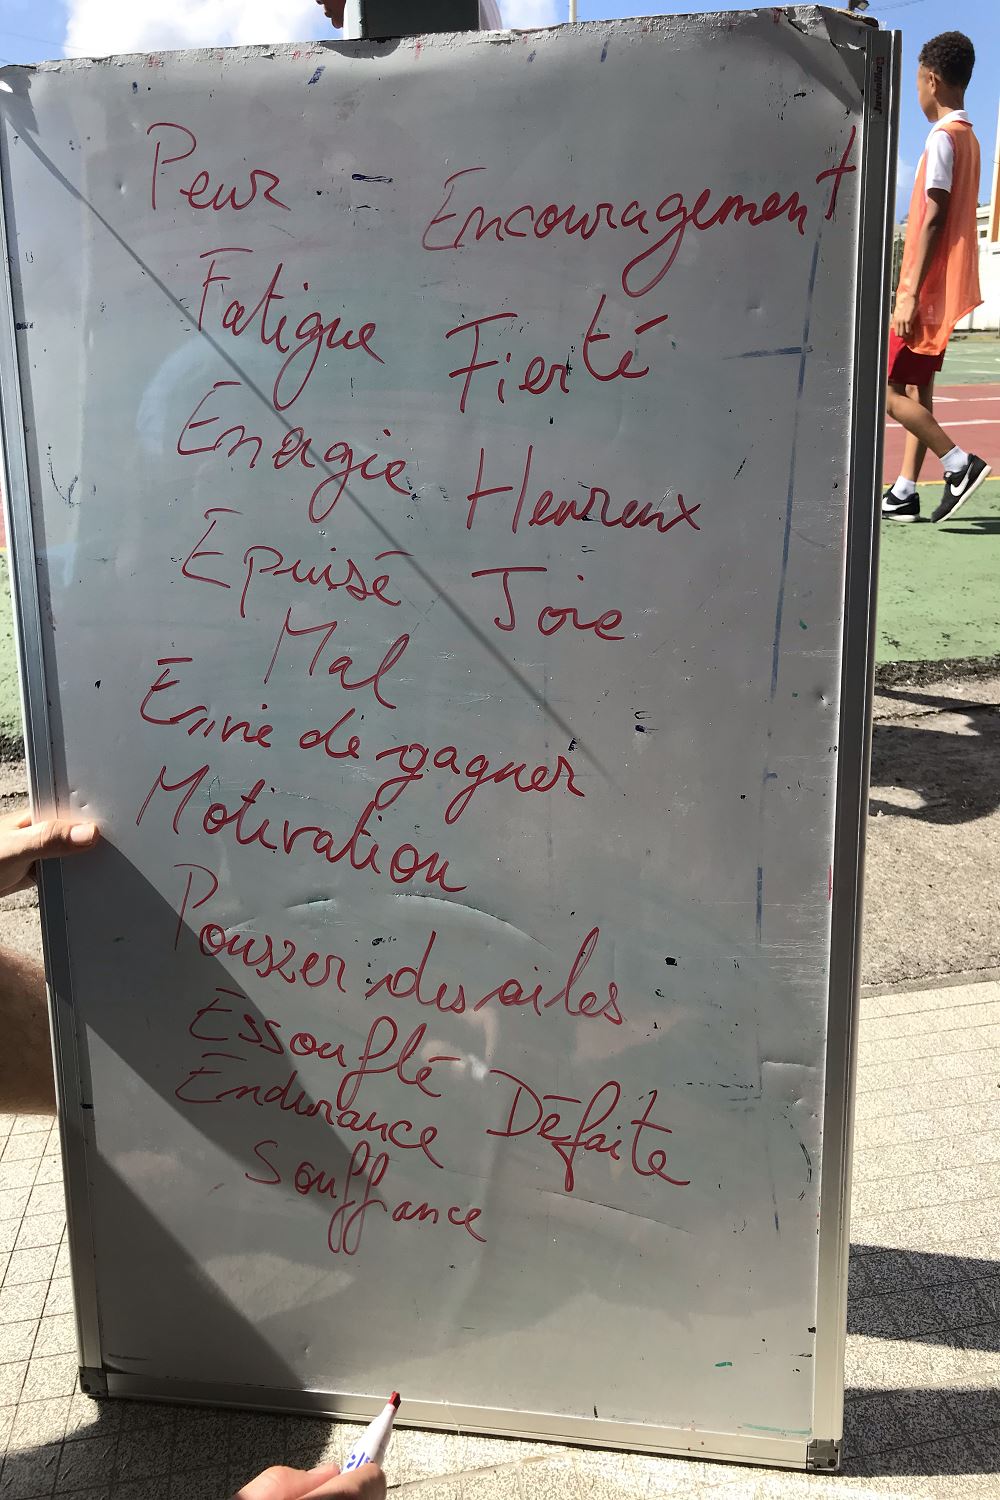 Peur - Encouragement
Fatigue Fierté
Energie Heureux
Epuisé Joie
Mal
Envie de gagner
Motivation
Pousser des ailes
Essouflé
Endurance Défaite
Souffance